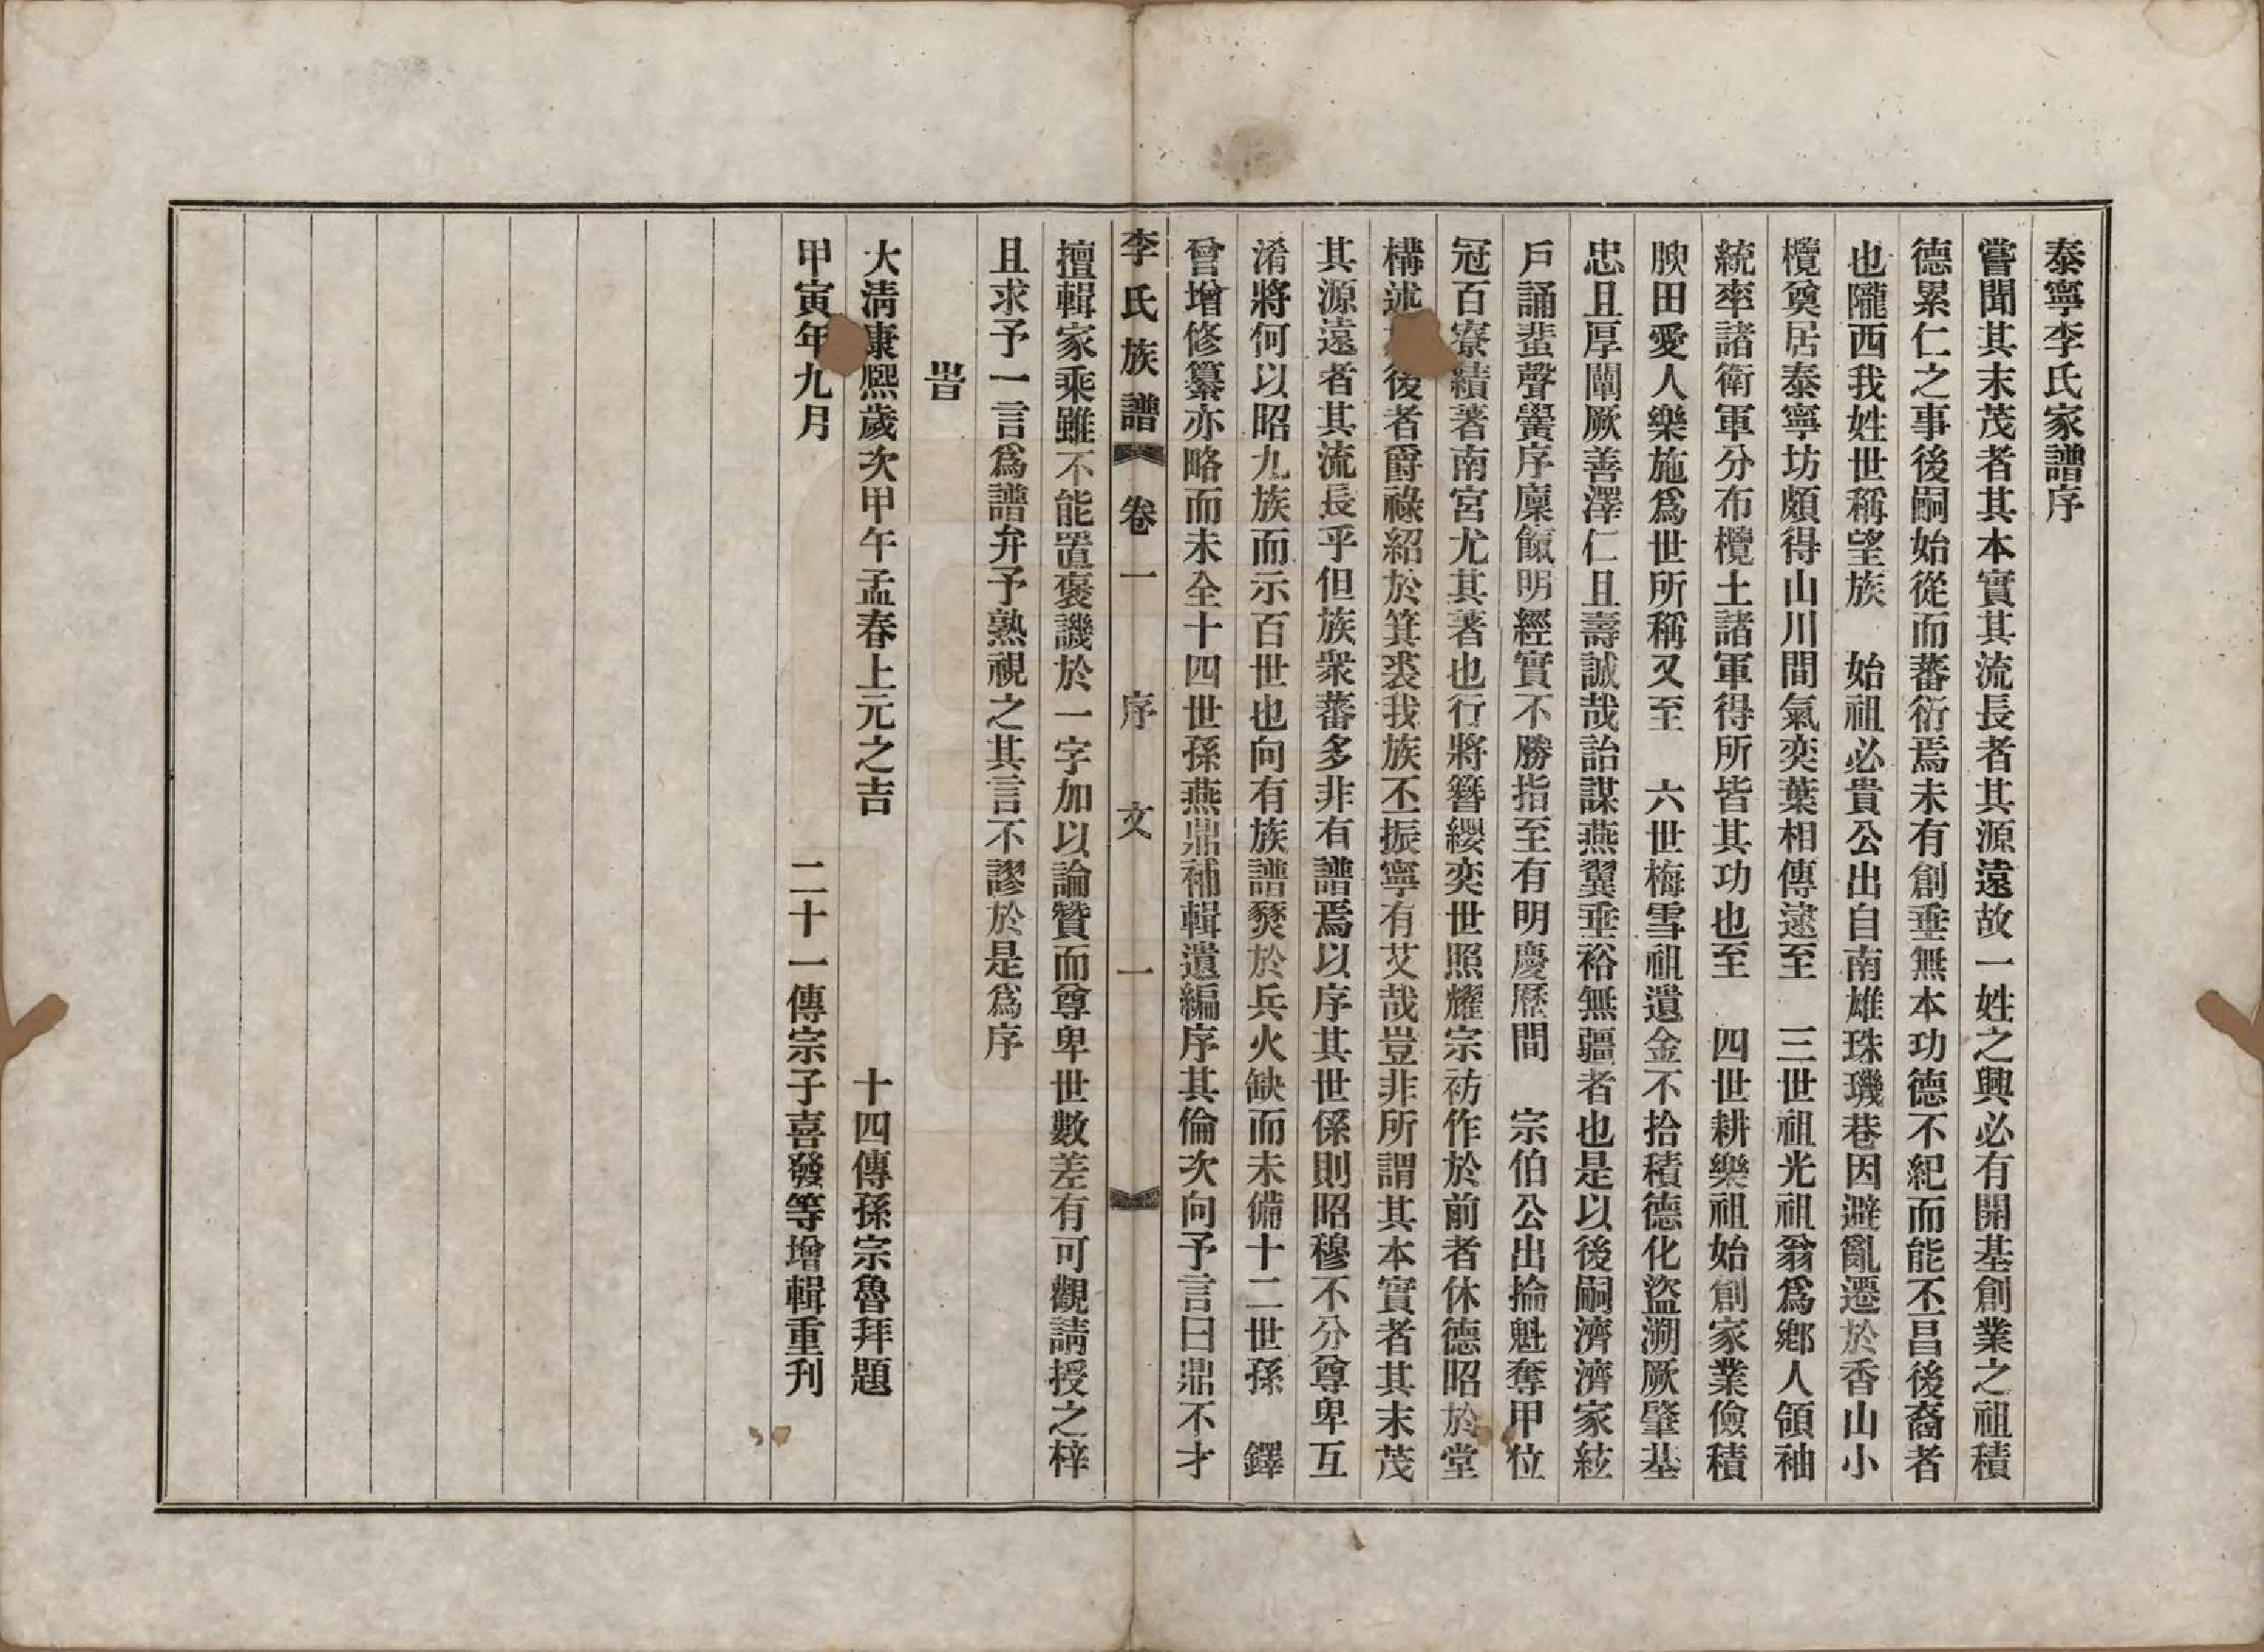 泰寧李氏家譜序
嘗聞其末茂者其本實其流長者其源遠故一姓之興必有開基創業之祖積
德累仁之事後嗣始從而蕃衍焉未有創垂無本功德不紀而能不昌後裔者
也隴西我姓世稱望族　始祖必貴公出自南雄珠璣巷因避亂遷於香山小
欖奠居泰寧坊頗得山川間氣奕葉相傳逮至　三世祖光祖翁爲鄉人領袖
統率諸衛軍分布欖土諸軍得所皆其功也至　四世耕樂祖始創家業儉積
腴田愛人樂施爲世所稱又至　六世梅雪祖遺金不拾積德化盜溯厥肇基
忠且厚闡厥善澤仁且壽誠哉詒謀燕翼垂裕無疆者也是以後嗣濟濟家絃
戶誦蜚聲黌序廩餼明經實不勝指至有明慶歷間　宗伯公出掄魁奪甲位
冠百寮績著南宮尤其著也行將簪纓奕世照耀宗祊作於前者休德昭於堂
構述後者爵祿紹於箕裘我族丕振寧有艾哉豈非所謂其本實者其末茂
其源遠者其流長乎但族衆蕃多非有譜焉以序其世係則昭穆不分尊卑互
淆將何以昭九族而示百世也向有族譜燹於兵火缺而未備十二世孫　鐸
曾增修纂亦略而未全十四世孫燕鼎補輯遺編序其倫次向予言曰鼎不才
李氏族譜　卷一　序文　一
擅輯家乘雖不能置褒譏於一字加以論贊而尊卑世數差有可觀請授之梓
且求予一言爲譜弁予熟視之其言不謬於是爲序
旹
大清康熙歲次甲午孟春上元之吉　十四傳孫宗魯拜題
甲寅年九月　二十一傳宗子喜發等增輯重刊